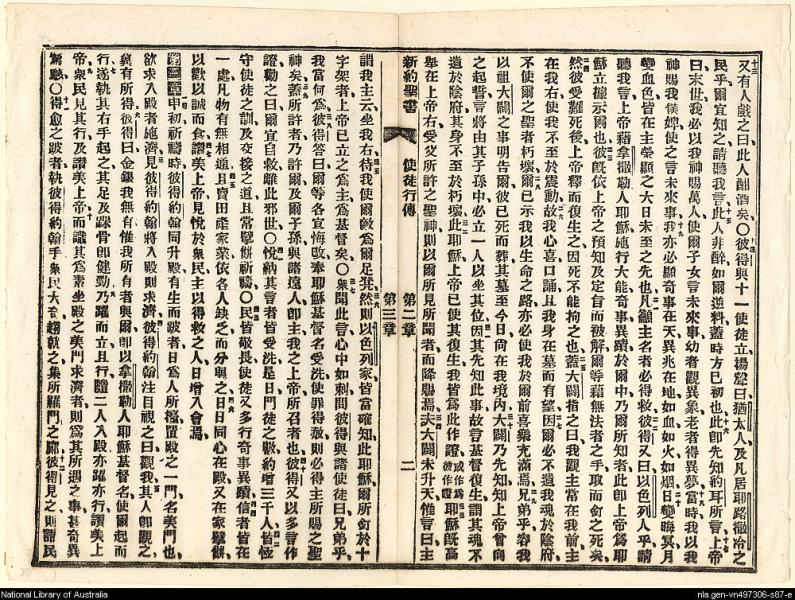 又有人戲之曰此人酣酒矣○彼得與十一使徒立揚聲曰猶太人及凡居耶路撒冷之
民乎爾宜知之請聽我言此人非醉如爾逆料蓋時方巳初也此卽先知約耳所言上帝
曰末世我必以我神賜萬人使爾子女言未來事幼者觀異象老者得異夢當時我以我
神賜我僕婢使之言未來事我亦必顯奇事在天異兆在地如血如火如烟日變晦冥月
變血色皆在主榮顯之大日未至之先也凡籲主名者必得救彼得又曰以色列人乎請
聽我言上帝藉拿撒勒人耶穌施行大能奇事異蹟於爾中乃爾所知者此卽上帝爲耶
穌立據示爾也彼旣依上帝之預知及定旨而被解爾等藉無法者之手取而釘之死矣
然彼受難死後上帝釋而復生之因死不能拘之也蓋大闢指之曰我觀主常在我前主
在我右使我不至於震動故我心喜口誦且我身在墓而有望因爾必不遺我魂於陰府
不使爾之聖者朽壞爾已示我以生命之路亦必使我於爾前喜樂充滿焉兄弟乎容我
以祖大闢之事明告爾彼已死而葬其墓至今日尙在我境內大闢乃先知知上帝曾向
之起誓言將由其子孫中必立一人以坐其位因其先知此事故言基督復生謂其魂不
遺於陰府其身不至於朽壞此耶穌上帝已使其復生我皆爲此作證或作爲彼作證耶穌旣高
舉在上帝右受父所許之聖神則以爾所見所聞者而降賜焉夫大闢未升天惟言曰主
新約聖書 使徒行傳 第二章 第三章 二
謂我主云坐我右待我使爾敵爲爾足凳然則以色列家皆當確知此耶穌爾所釘於十
字架者上帝已立之爲主爲基督矣○衆聞此言心中如刺問彼得與諸使徒曰兄弟乎
我當何爲彼得答曰爾等各宜悔改奉耶穌基督名受洗使罪得赦則必得主所賜之聖
神矣蓋所許者乃許爾及爾子孫與諸遠人卽主我之上帝所召者也彼得又以多言作
證勸之曰爾宜自救離此邪世○悅納其言者皆受洗是日門徒之數約增三千人皆恆
守使徒之訓及交接之道且常擘餅祈禱○民皆敬畏使徒又多行奇事異蹟信者皆在
一處凡物有無相通且賣田產家業依各人缺乏而分與之日日同心在殿又在家擘餅
以歡以誠而食讚美上帝見悅於衆民主以得救之人日增入會焉
第三章申初祈禱時彼得約翰同升殿有生而跛者日爲人所擡置殿之一門名美門也
欲求入殿者施濟見彼得約翰將入殿則求濟彼得約翰注目視之曰觀我其人卽觀之
冀有所得彼得曰金銀我無有惟我所有者與爾卽以拿撒勒人耶穌基督名使爾起而
行遂執其右手起之其足及踝骨卽健勁乃躍而立且行隨二人入殿亦躍亦行讚美上
帝衆民見其行及讚美上帝而識其爲素坐殿之美門求濟者則爲其所遇之事甚奇異
驚駭○得愈之跛者執彼得約翰手衆民大奇趨就之集所羅門之廊彼得見之則謂民
National Library of Australia
nla.gen-vn497306-s87-e